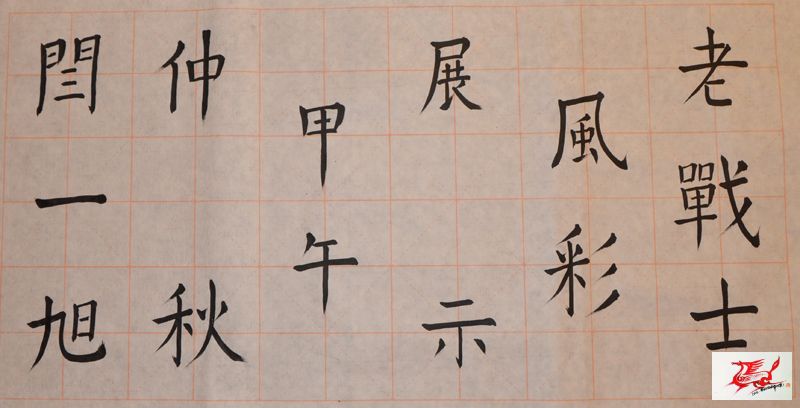 老戰士
風彩
展示
甲午
仲秋
閆一旭